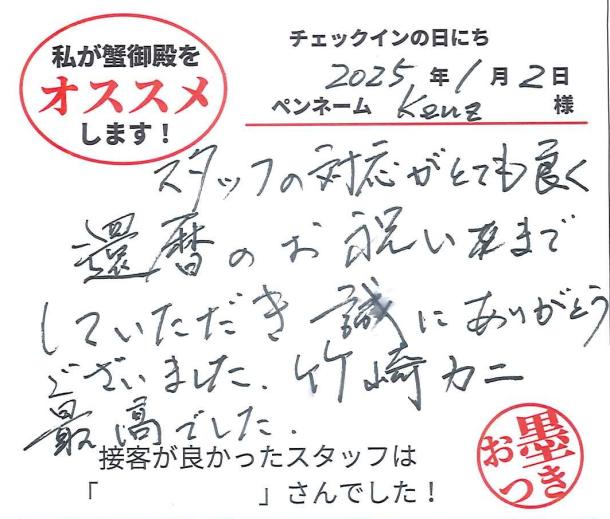 私が蟹御殿を
オススメ
します!
チェックインの日にち
2025年1月2日
ペンネーム Kenz 様
スタッフの対応がとても良く
還暦のお祝いまで
していただき誠にありがとう
ございました.竹崎カニ
最高でした.
接客が良かったスタッフは
「 」さんでした!
お墨
つき